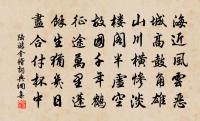 海近風雲惡
城高鼓角雄
山川橫慘淡
樓閣半虛空
故國千年鶴
征途萬里蓬
餘生獨幾日
盡合付杯中
陸游